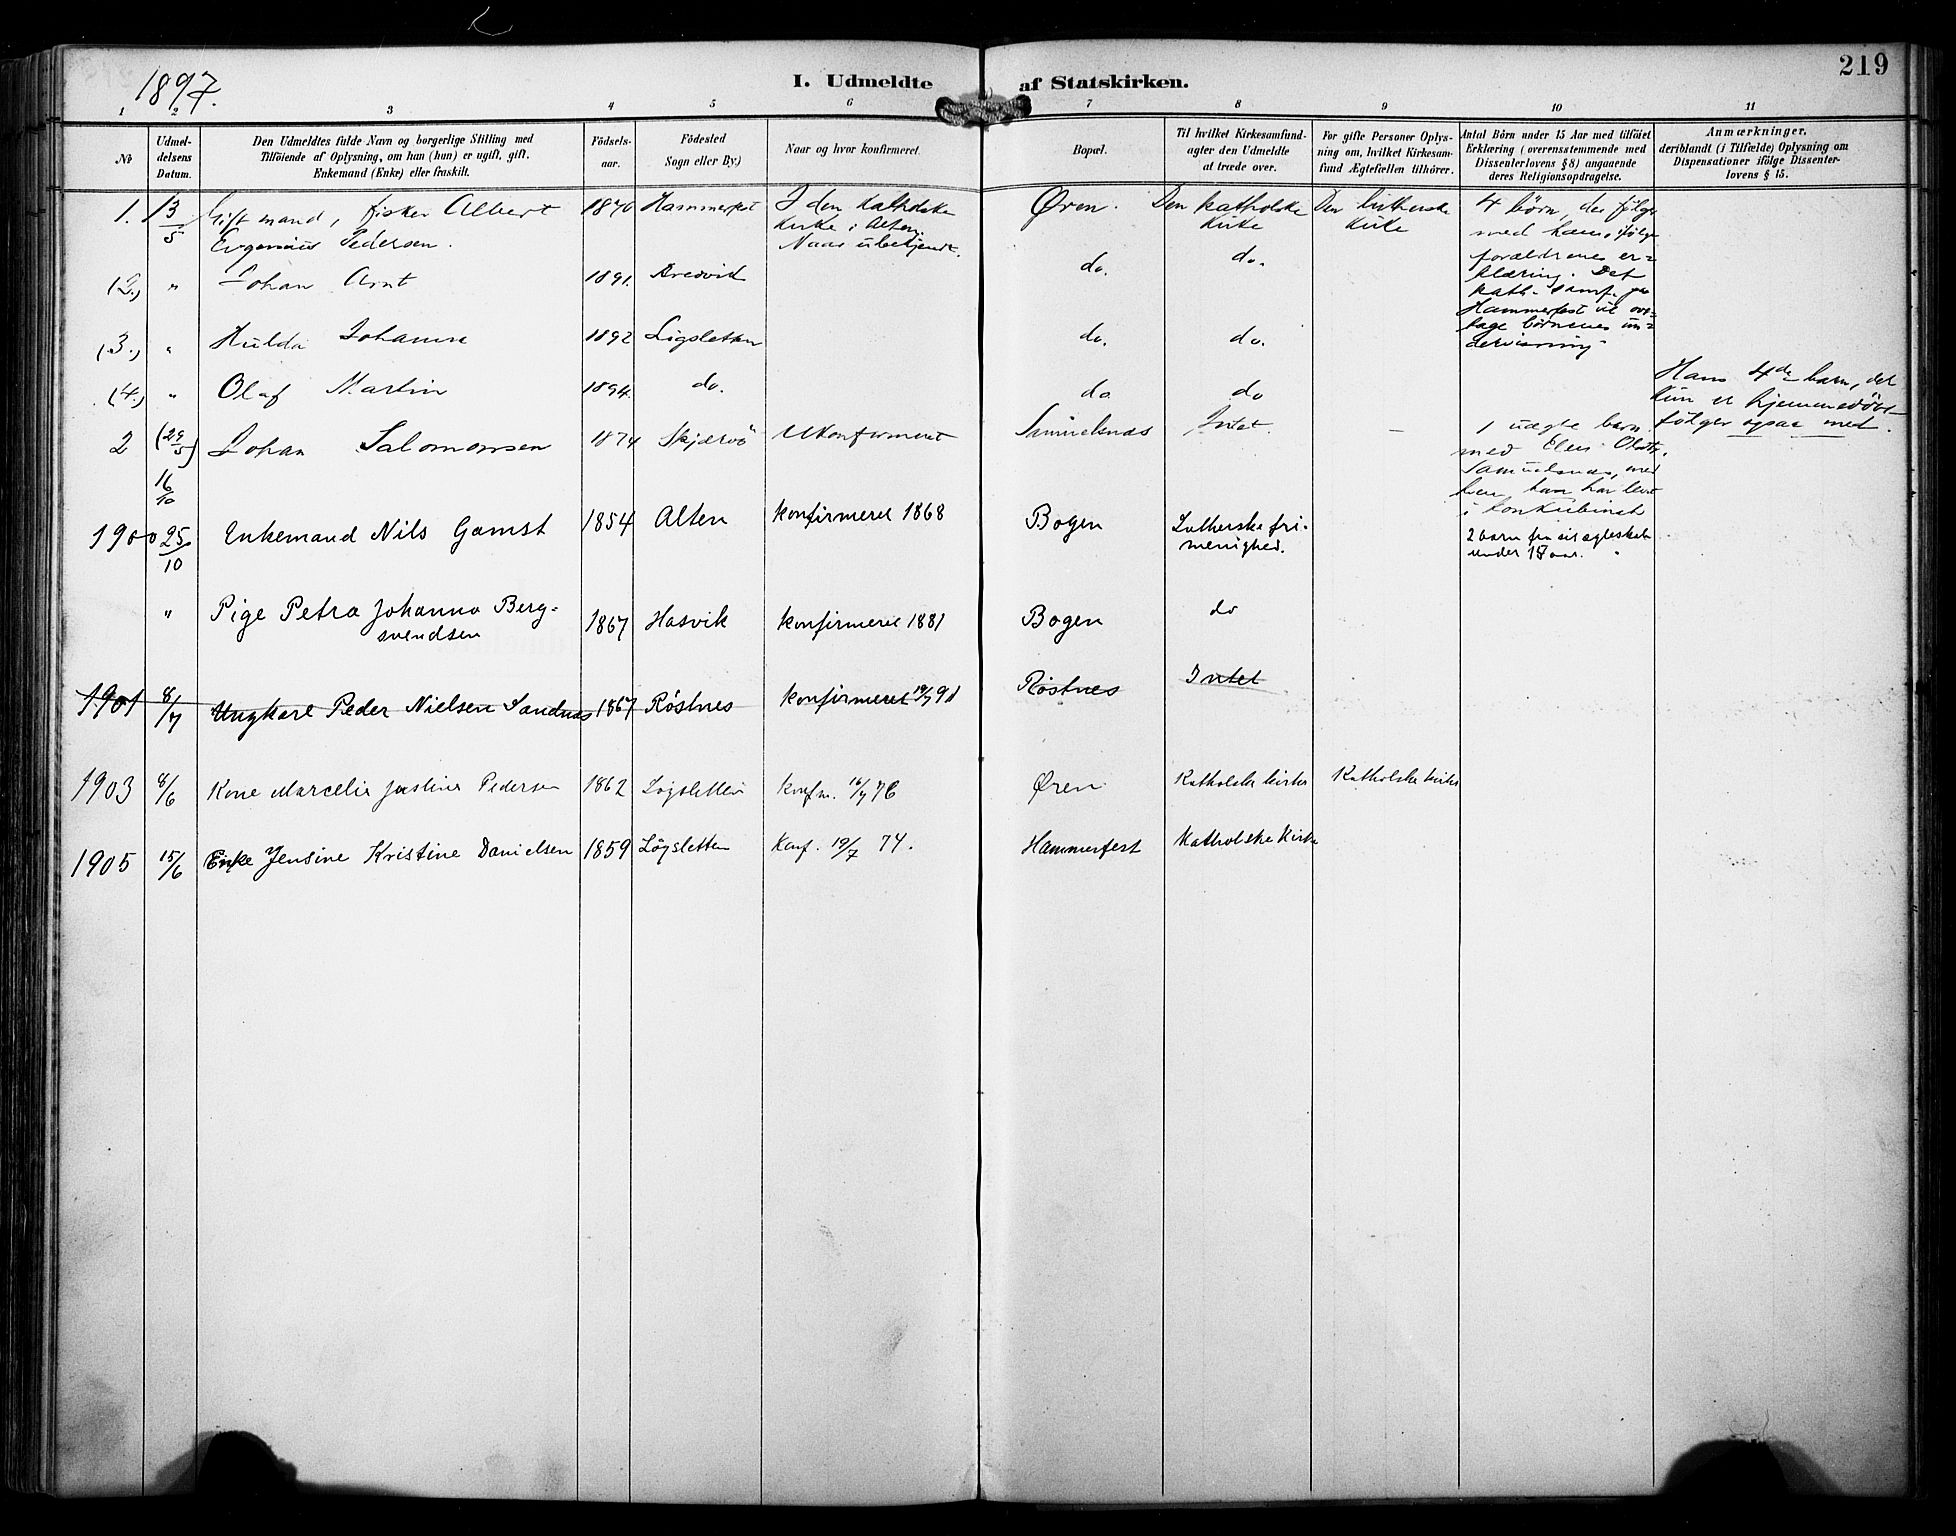 219
1897.
I. Udmeldte af Statskirken.
1 2 3 4 5 6 7 8 9 10 11
No
Udmeldelsens Datum.
Den Udmeldtes fulde Navn og borgerlige Stilling med
Tilføiende af Oplysning, om han (hun) er ugift, gift,
Enkemand (Enke) eller fraskilt.
Födsels-
aar.
Födested
Sogn eller By.)
Naar og hvor konfirmeret.
Bopæl.
Til hvilket Kirkesamfund
agter den Udmeldte
at træde over.
For gifte Personer Oplys-
ning om, hvilket Kirkesam-
fund Ægtefællen tilhörer.
Antal Börn under 15 Aar med tilföiet
Erklæring (overensstemmende med
Dissenterlovens § 8) angaaende
deres Religionsopdragelse.
Anmærkninger,
deriblandt (i Tilfælde) Oplysning om
Dispensationer ifölge Dissenter-
lovens § 15.
1. 13/5 Gift mand, fisker Albert 1870 Hammerfest I den katholske Øren. Den katholske Den lutherske 4 börn, der fölger
Evgenius Pedersen. kirke i Alten. kirke kirke med ham, ifölge
Naar ubekjendt. forældrenes er-
(2.) " Johan Arnt 1891. do. do. klæring. Det
kath. samf. paa
Hammerfest vil over-
tage börnenes un-
(3.) " Hulda Johanne 1892 Lögsletten do. do. dervisning.
(4.) " Olaf Martin 1894. do. do do Hans 4de barn, det
kun er hjemmedöbt
fölger ogsaa med.
2 (29/5) Johan Salomonsen 1874 Skjærvö Ukonfirmeret Samuelsnæs Intet. 1 uægte barn
16/10 med Elen
Samuelsnæs, med
hvem han har levet
i konkubinat
1900 25/10 Enkemand Nils Gamst 1854 Alten konfirmeret 1868 Bogen Lutherske fri- 2 barn fra sit ægteskab
menighed. under 15 aar.
" Pige Petra Johanna Berg- 1867 Hasvik konfirmeret 1881 Bogen do
svendsen
1901 8/7 Ungkarl Peder Nielsen Sandnæs 1867 Röstnes konfirmeret 19/7 91 Röstnes Intet
1903 8/6 Kone Marcelie Justine Pedersen 1862 Lögsletten Konfm. 16/7 76 Øren Katholske kirke Katholske kirke
1905 15/6 Enke Jensine Kristine Danielsen 1859 Lögsletten Konf. 19/7 74. Hammerfest Katholske Kirke